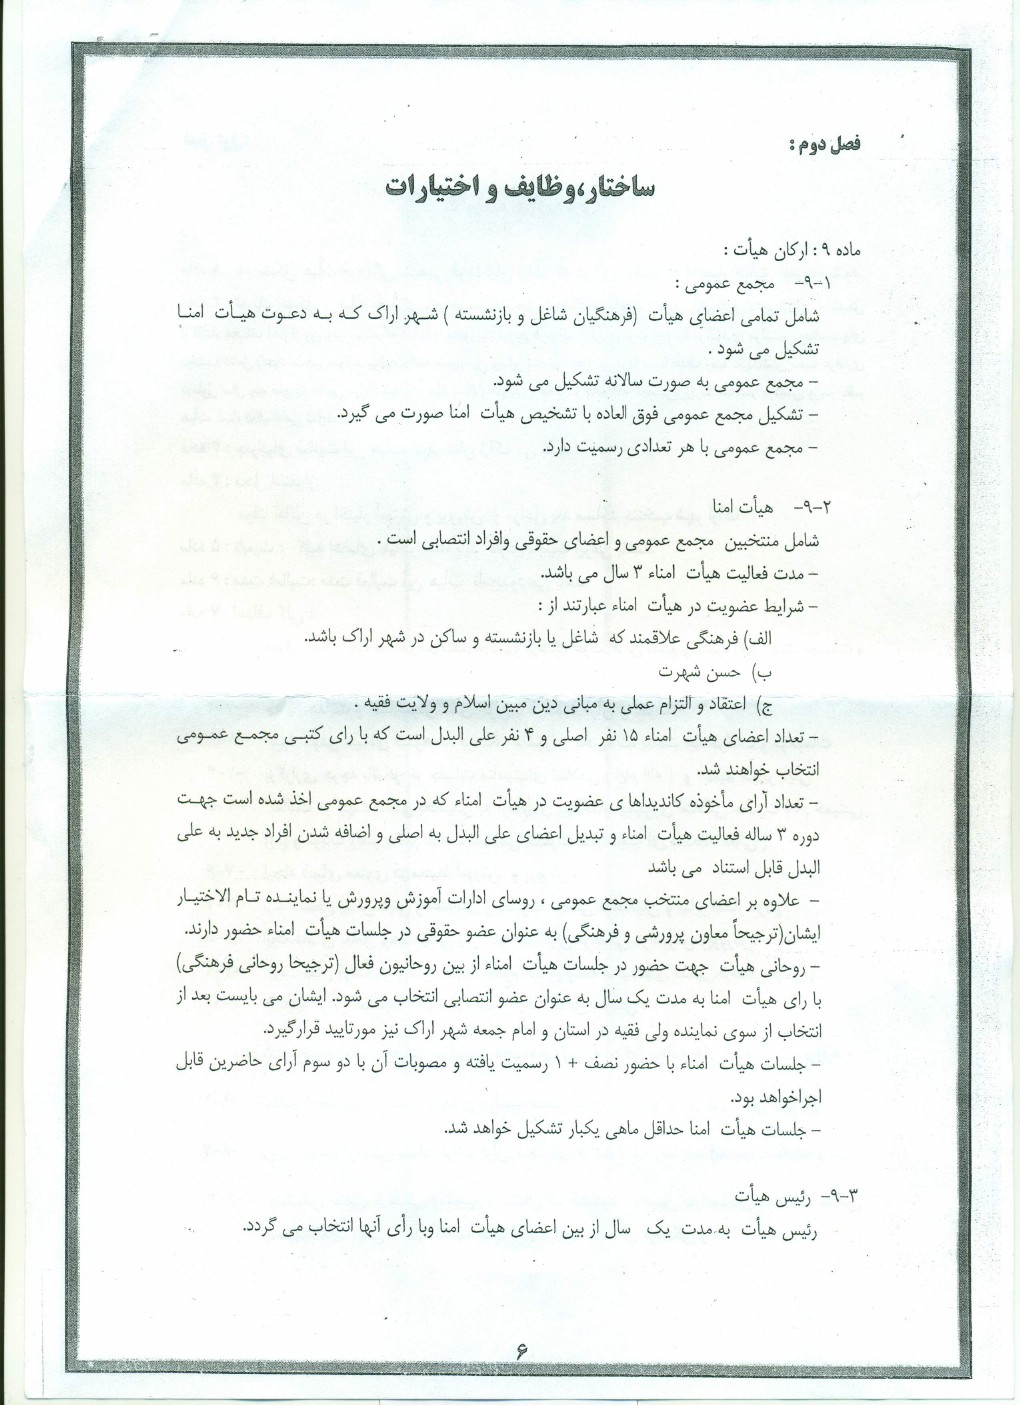 فصل دوم :
ساختار،وظایف و اختیارات
ماده ۹ : ارکان هیأت :
۹-۱- مجمع عمومی :
شامل تمامی اعضای هیأت (فرهنگیان شاغل و بازنشسته ) شهر اراک که به دعوت هیأت امنا
تشکیل می شود .
- مجمع عمومی به صورت سالانه تشکیل می شود.
- تشکیل مجمع عمومی فوق العاده با تشخیص هیأت امنا صورت می گیرد.
- مجمع عمومی با هر تعدادی رسمیت دارد.
۹-۲- هیأت امنا
شامل منتخبین مجمع عمومی و اعضای حقوقی وافراد انتصابی است .
- مدت فعالیت هیأت امناء ۳ سال می باشد.
- شرایط عضویت در هیأت امناء عبارتند از :
الف) فرهنگی علاقمند که شاغل یا بازنشسته و ساکن در شهر اراک باشد.
ب) حسن شهرت
ج) اعتقاد و التزام عملی به مبانی دین مبین اسلام و ولایت فقیه .
- تعداد اعضای هیأت امناء ۱۵ نفر اصلی و ۴ نفر علی البدل است که با رای کتبی مجمع عمومی
انتخاب خواهند شد.
- تعداد آرای مأخوذه کاندیداها ی عضویت در هیأت امناء که در مجمع عمومی اخذ شده است جهت
دوره ۳ ساله فعالیت هیأت امناء و تبدیل اعضای علی البدل به اصلی و اضافه شدن افراد جدید به علی
البدل قابل استناد می باشد
- علاوه بر اعضای منتخب مجمع عمومی ، روسای ادارات آموزش وپرورش یا نماینده تام الاختیار
ایشان(ترجیحاً معاون پرورشی و فرهنگی) به عنوان عضو حقوقی در جلسات هیأت امناء حضور دارند.
- روحانی هیأت جهت حضور در جلسات هیأت امناء از بین روحانیون فعال (ترجیحا روحانی فرهنگی)
با رای هیأت امنا به مدت یک سال به عنوان عضو انتصابی انتخاب می شود. ایشان می بایست بعد از
انتخاب از سوی نماینده ولی فقیه در استان و امام جمعه شهر اراک نیز مورتایید قرارگیرد.
- جلسات هیأت امناء با حضور نصف + ۱ رسمیت یافته و مصوبات آن با دو سوم آرای حاضرین قابل
اجراخواهد بود.
- جلسات هیأت امنا حداقل ماهی یکبار تشکیل خواهد شد.
۹-۳- رئیس هیأت
رئیس هیأت به مدت یک سال از بین اعضای هیأت امنا وبا رأی آنها انتخاب می گردد.
۶